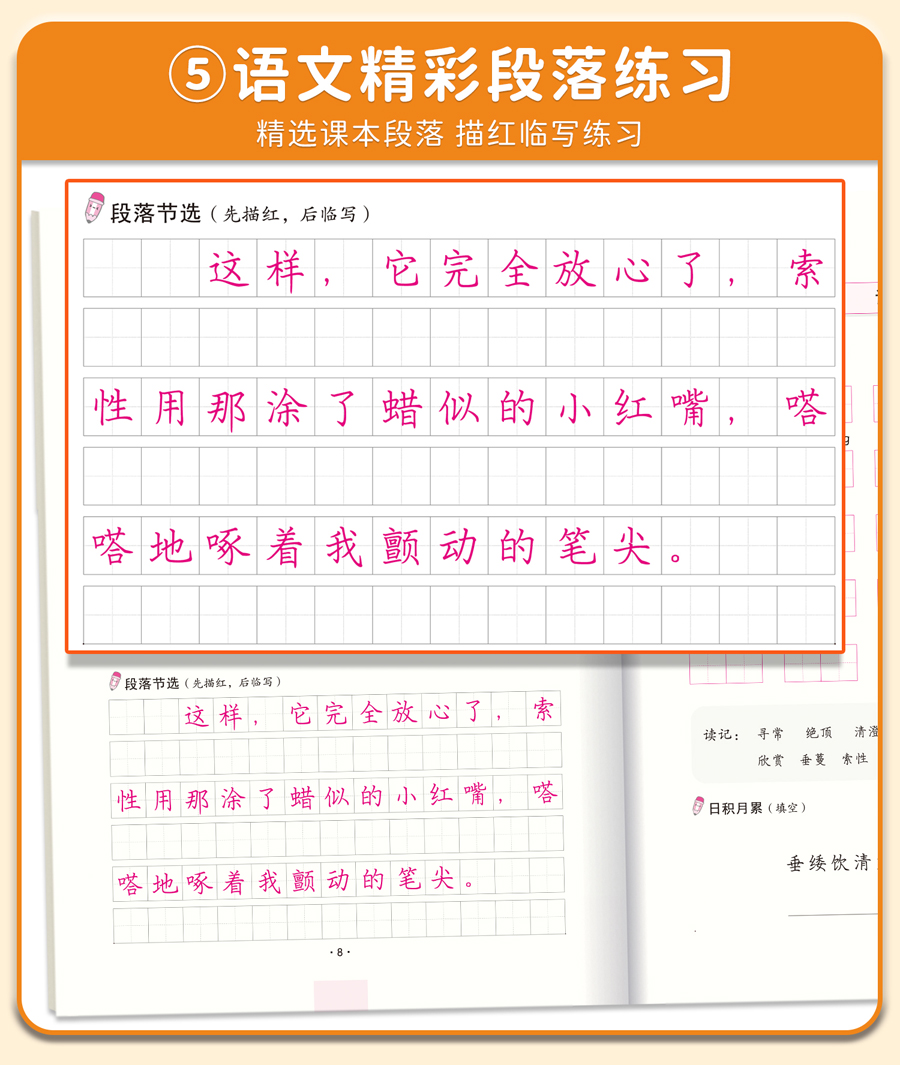 ⑤语文精彩段落练习
精选课本段落 描红临写练习
段落节选（先描红，后临写）
这样，它完全放心了，索
性用那涂了蜡似的小红嘴，嗒
嗒地啄着我颤动的笔尖。
段落节选（先描红，后临写）
这样，它完全放心了，索
性用那涂了蜡似的小红嘴，嗒
嗒地啄着我颤动的笔尖。
·8·
读记： 寻常 绝顶 清澄
欣赏 垂蔓 索性
日积月累（填空）
垂缕饮清